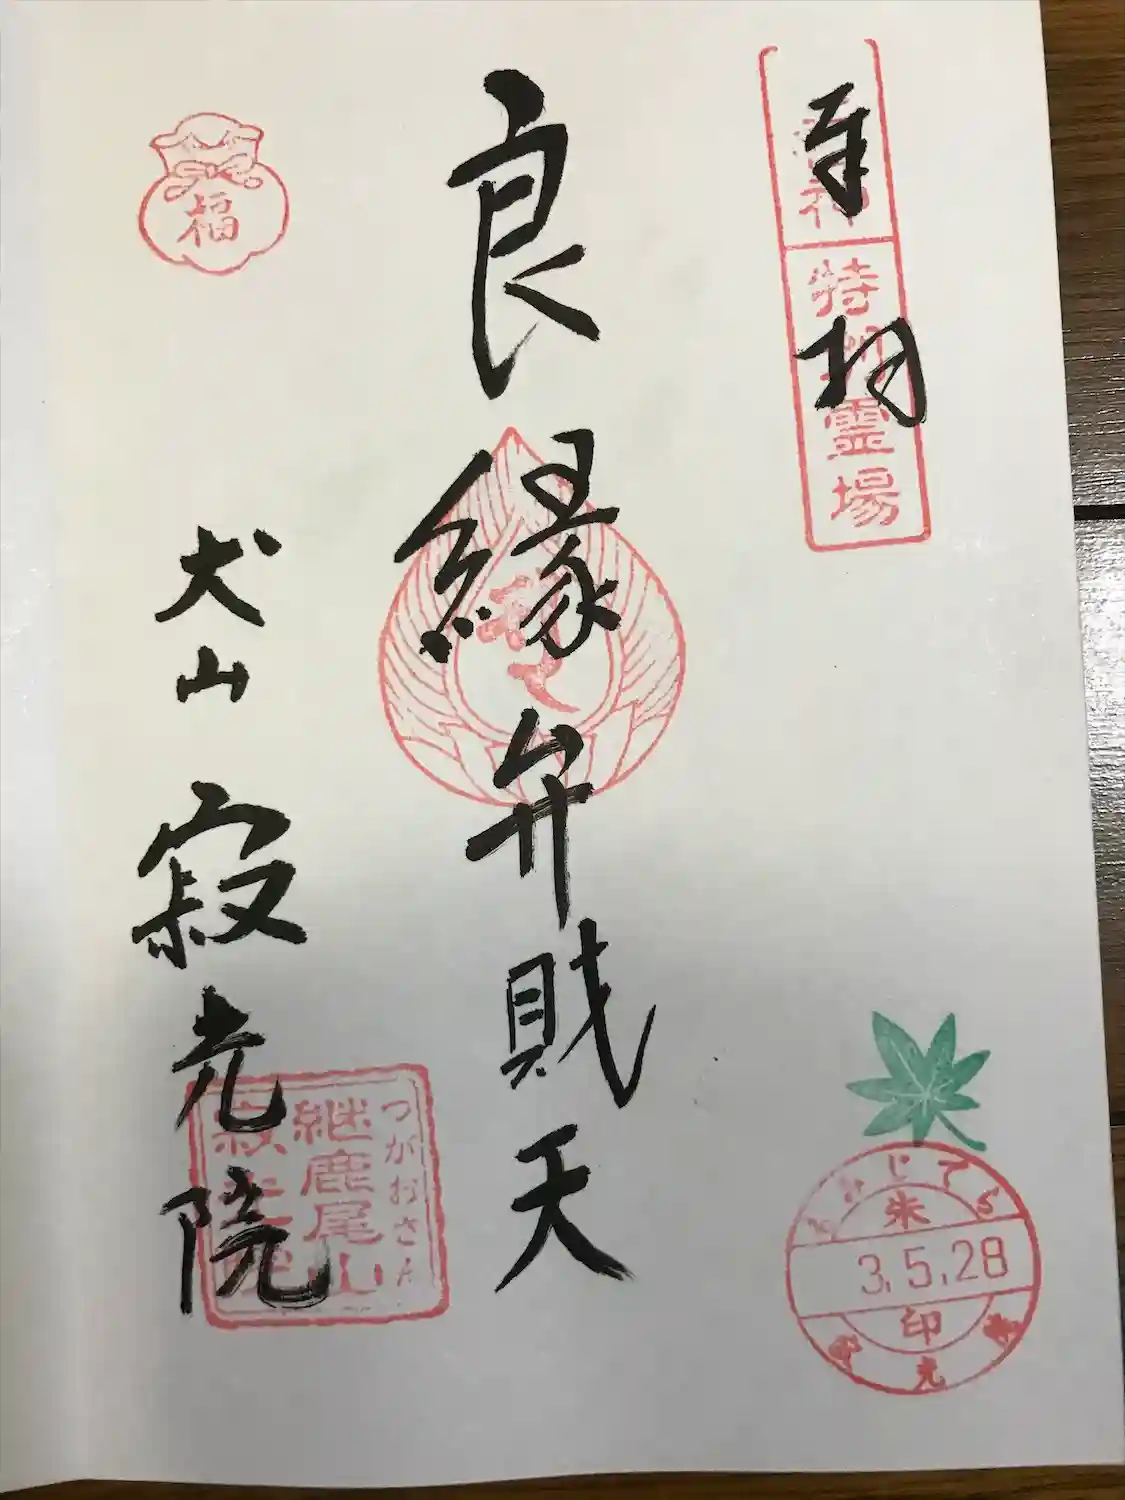 奉拝
特別霊場
良縁弁財天
福
犬山 寂光院
つがおさん
継鹿尾山
寂光院
もみじでら
朱
3.5.28
印
寂光院